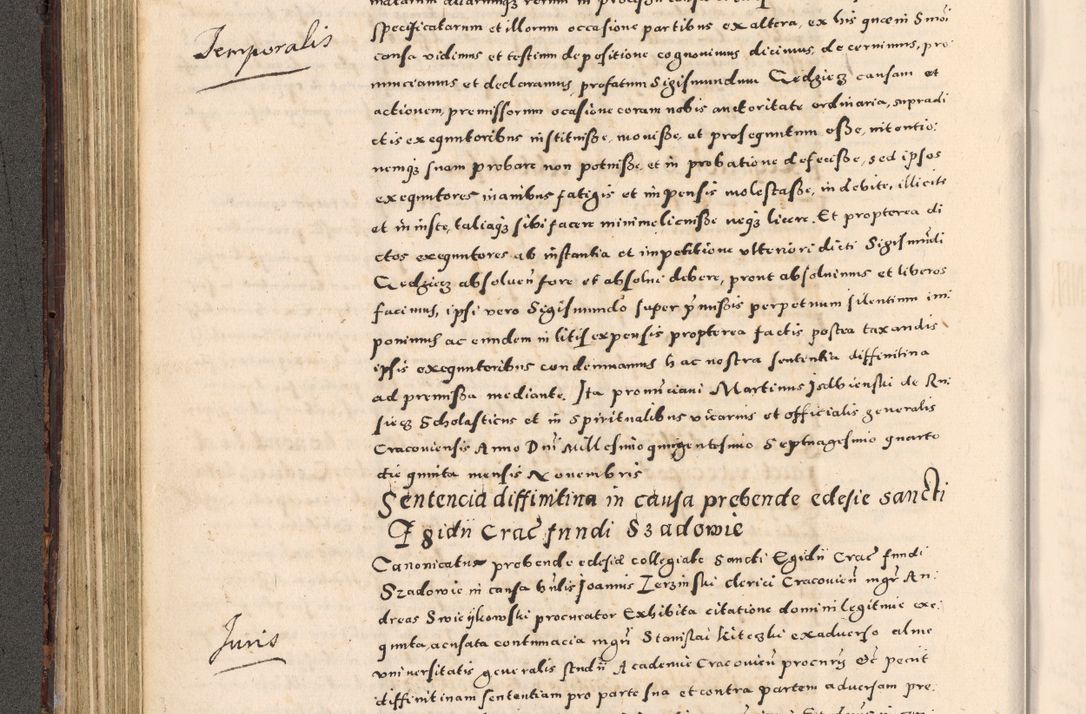 specificatarum et illorum occasione partibus ex altera, ex his quæ in
Temporalis
causa vidimus et testium depositione cognovimus dicimus, decernimus, pro
nunceamus et declaramus, prefatum Sigismundum Gedziecz causam et
actionem, premissorum ocasione coram nobis auctoritate ordinaria, supradi
ctis exequutoribus instituisse, movisse, et prosequutum esse, intentio:
nemq3 suam probare non potuisse, et in probatione defecisse, sed ipsos
exequutores inanibus fatigis et impensis molestasse, in debite, illicite
et iniuste, taliaq3 sibi facere minime licuisse neq3 licere. Et propterea di
ctos exequutores ab instantia et impetitione ulteriori dicti Sigismundi
Gedziecz absolven fore et absolui debere, prout absoluimus et liberos
facimus, ipsi vero Sigismundo super pmissis perpetuum silentium im
ponimus ac eundem in litis expensis propterea factis postea taxandis
ipsis exequutoribus condemnamus hac nostra sententia diffinitiua
ad premissa mediante. Ita pronunciavi Martinus Isdbienski de Ru
siecz Scholasticus et in spiritualibus vicarius et officialis generalis
Cracoviensis Anno Dni Millesimo quingentesimo Septuagesimo quarto
die quinta mensis Novembris
Sentencia diffinitiua in causa prebende eclesie sancti
Egidii Crac fundi Szadowie
Canonicatus prebende eclesie collegiate Sancti Egidii Crac fundi
Szadowie in causa Ioannis Zerzinski clerici Cracovien mgr An:
dreas Swieykowski procurator Exhibita citatione domini legitime exe:
Iuris
quuta, acusata contumacia mgri Stanislai Kiteczki ex adverso alme
universitatis generalis studii Academie Cracovien procuris Oc petiit
diffinitiuam sententiam pro parte sua et contra partem adversam pre: